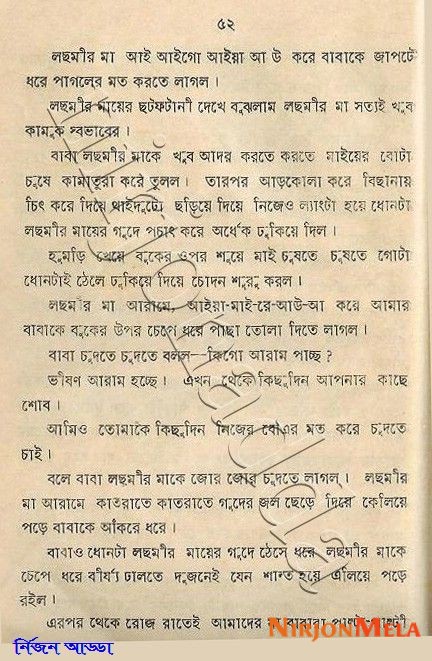 ৫২
লছমীর মা আই আইগো আইয়া আ উ করে বাবাকে জাপটে
ধরে পাগলের মত করতে লাগল।
লছমীর মায়ের ছটফটানী দেখে বুঝলাম লছমীর মা সত্যই খুব
কামুক স্বভাবের।
বাবা লছমীর মাকে খুব আদর করতে করতে মাইয়ের বোটা
চুষে কামাতুরা করে তুলল। তারপর আড়কোলা করে বিছানায়
চিৎ করে দিয়ে থাইদুটো ছড়িয়ে দিয়ে নিজেও ল্যাংটা হয়ে ধোনটা
লছমীর মায়ের গুদে পচাৎ করে অর্ধেক ঢুকিয়ে দিল।
হুমড়ি খেয়ে বুকের ওপর শুয়ে মাই চুষতে চুষতে গোটা
ধোনটাই ঠেলে ঢুকিয়ে দিয়ে চোদন শুরু করল।
লছমীর মা আরামে, আইয়া-মাই-রে-আউ-আ করে আমার
বাবাকে বুকের উপর চেপে ধরে পাছা তোলা দিতে লাগল।
বাবা চুদতে চুদতে বলল—কিগো আরাম পাচ্ছ ?
ভীষণ আরাম হচ্ছে। এখন থেকে কিছুদিন আপনার কাছে
শোব।
আমিও তোমাকে কিছুদিন নিজের বৌএর মত করে চুদতে
চাই।
বলে বাবা লছমীর মাকে জোর জোর চুদতে লাগল। লছমীর
মা আরামে কাতরাতে কাতরাতে গুদের জল ছেড়ে দিয়ে কেলিয়ে
পড়ে বাবাকে আঁকরে ধরে।
বাবাও ধোনটা লছমীর মায়ের গুদে ঠেসে ধরে লছমীর মাকে
চেপে ধরে বীর্য্য ঢালতে দুজনেই যেন শান্ত হয়ে এলিয়ে পড়ে
রইল।
এরপর থেকে রোজ রাতেই আমাদের
নির্জন আড্ডা
NIRJONMELA